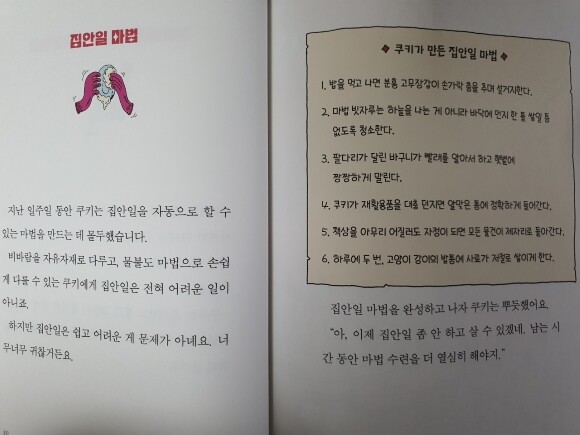 집안일 마법
지난 일주일 동안 쿠키는 집안일을 자동으로 할 수
있는 마법을 만드는 데 몰두했습니다.
비바람을 자유자재로 다루고, 물불도 마법으로 손쉽
게 다룰 수 있는 쿠키에게 집안일은 전혀 어려운 일이
아니죠.
하지만 집안일은 쉽고 어려운 게 문제가 아니에요. 너
무너무 귀찮거든요.
쿠키가 만든 집안일 마법
1. 밥을 먹고 나면 분홍 고무장갑이 손가락 춤을 추며 설거지한다.
2. 마법 빗자루는 하늘을 나는 게 아니라 바닥에 먼지 한 톨 쌓일 틈
없도록 청소한다.
3. 팔다리가 달린 바구니가 빨래를 알아서 하고 햇볕에
짱짱하게 말린다.
4. 쿠키가 재활용품을 대충 던지면 알맞은 통에 정확하게 들어간다.
5. 책상을 아무리 어질러도 자정이 되면 모든 물건이 제자리로 돌아간다.
6. 하루에 두 번, 고양이 강이의 밥통에 사료가 저절로 쌓이게 한다.
집안일 마법을 완성하고 나자 쿠키는 뿌듯했어요.
"아, 이제 집안일 좀 안 하고 살 수 있겠네. 남는 시
간 동안 마법 수련을 더 열심히 해야지."